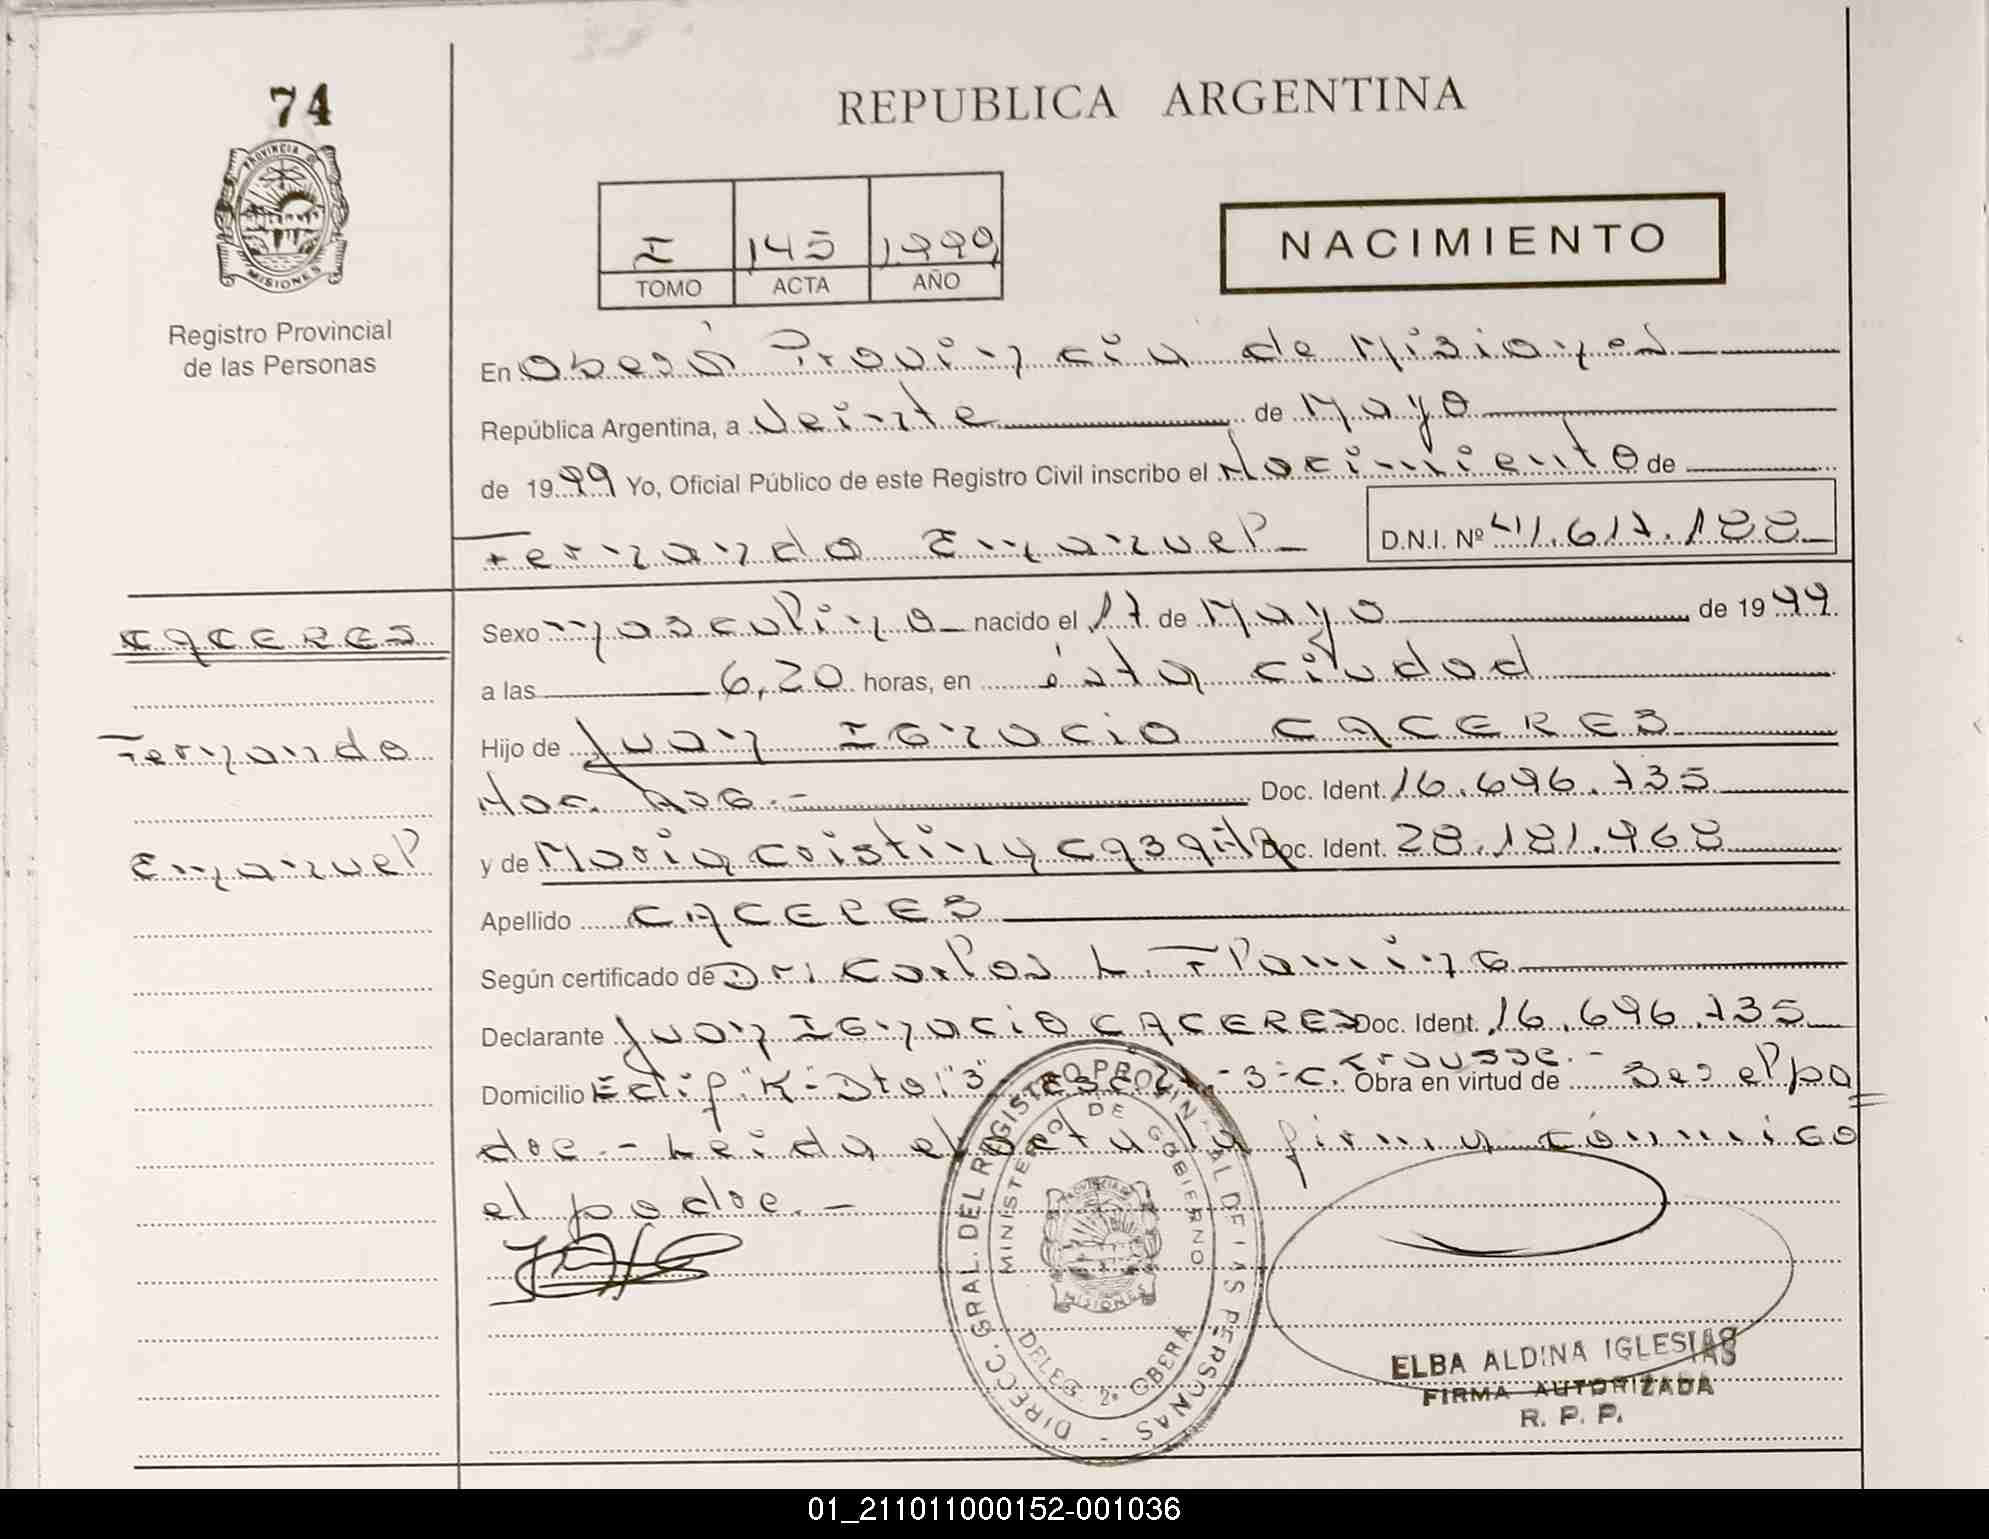 74
PROVINCIA DE
MISIONES
Registro Provincial
de las Personas
REPUBLICA ARGENTINA
I 145 1.999
TOMO ACTA AÑO
NACIMIENTO
En Oberá Provincia de Misiones
República Argentina, a Veinte de Mayo
de 1999 Yo, Oficial Público de este Registro Civil inscribo el Nacimiento de
Fernando Emanuel D.N.I. Nº 41.617.188
CACERES
Fernando
Emanuel
Sexo masculino nacido el 17 de Mayo de 1999
a las 6,20 horas, en ésta ciudad
Hijo de Juan Ignacio CACERES
Nac. Arg.- Doc. Ident. 16.696.735
y de Maria Cristina Doc. Ident. 28.181.968
Apellido CACERES
Según certificado de Dr. Carlos L. Flamin
Declarante Juan Ignacio CACERES Doc. Ident. 16.696.735
Domicilio Edif "K" Dto "3" Esc - 3 - C. Krausse.- Obra en virtud de Ser el pa
dre.- Leida el acta la firma cónmigo
el padre.-
DIRECC. GRAL. DEL REGISTRO PROVINCIAL DE LAS PERSONAS -
MINISTERIO DE GOBIERNO
PROVINCIA DE
MISIONES
DELEG. 2ª OBERA
ELBA ALDINA IGLESIAS
FIRMA AUTORIZADA
R. P. P.
01_211011000152-001036